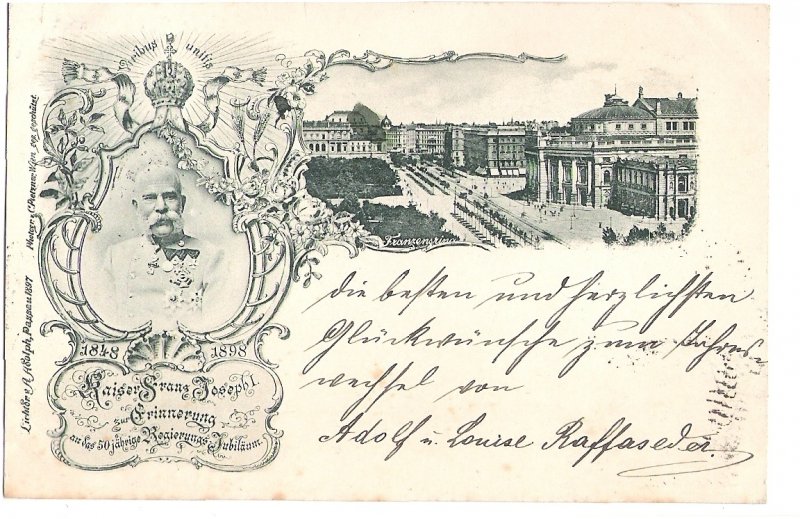 Viribus unitis
1848 1898
Kaiser Franz Joseph I.
zur
Erinnerung
an das 50 jährige Regierungs-Jubiläum.
Franzensring
die besten und herzlichsten
Glückwünsche zum Jahres-
wechsel von
Adolf u. Louise Raffaseder.
Lichtdr. v. A. Adolph, Passau 1897
Wien ges. geschützt